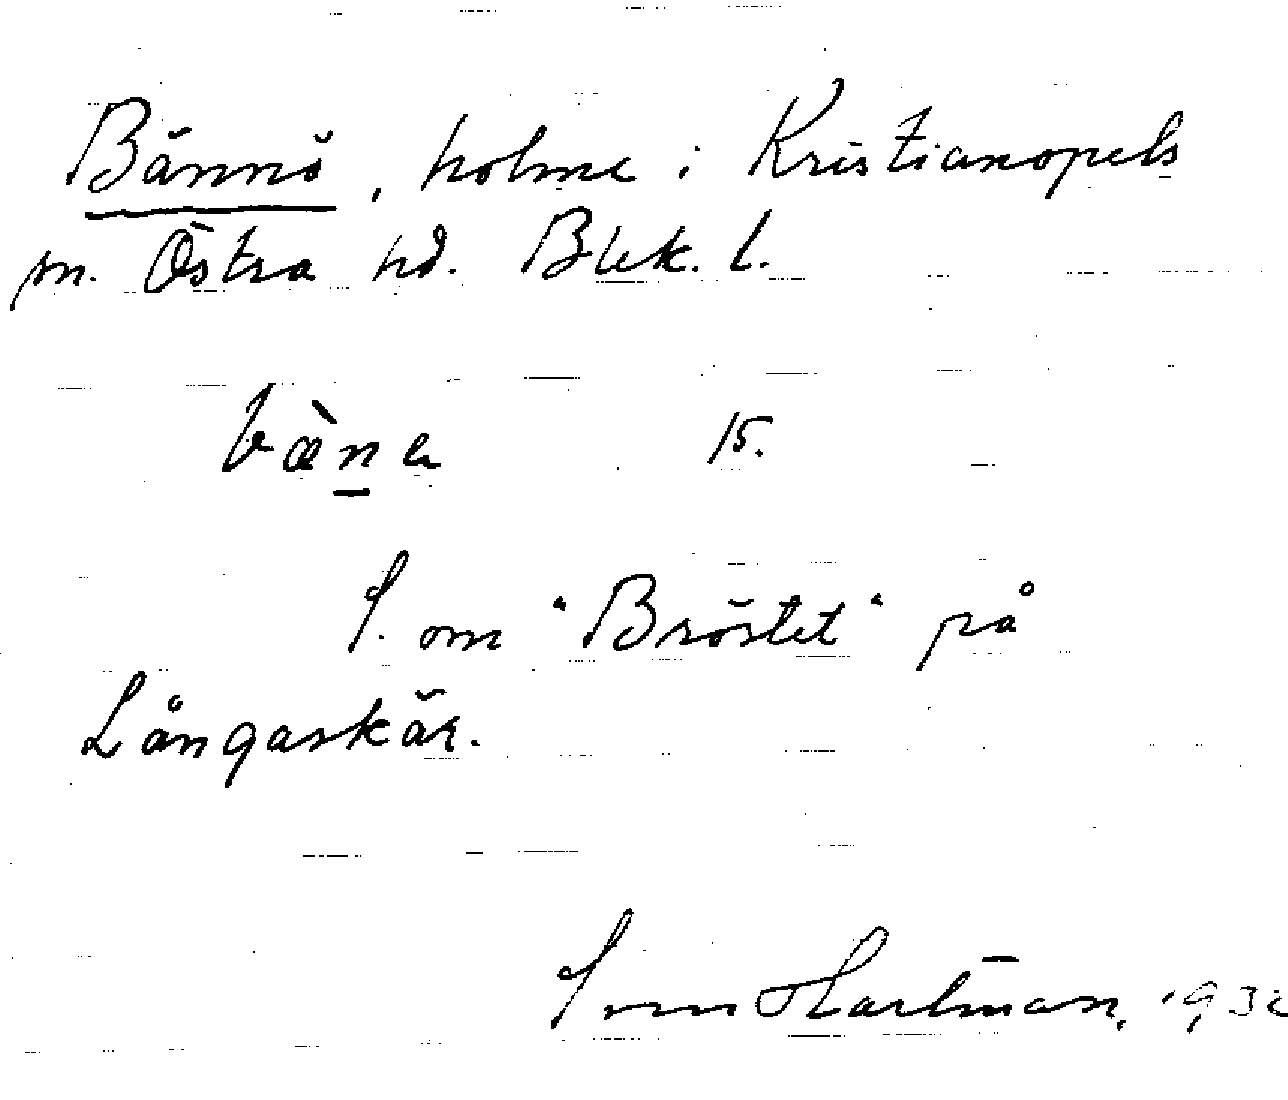 Bännö, holme i Kristianopels
m. Östra hd. Blek. l.
15.
S. om "Bröstet" på
Långaskär.
Sven Hartman, 193